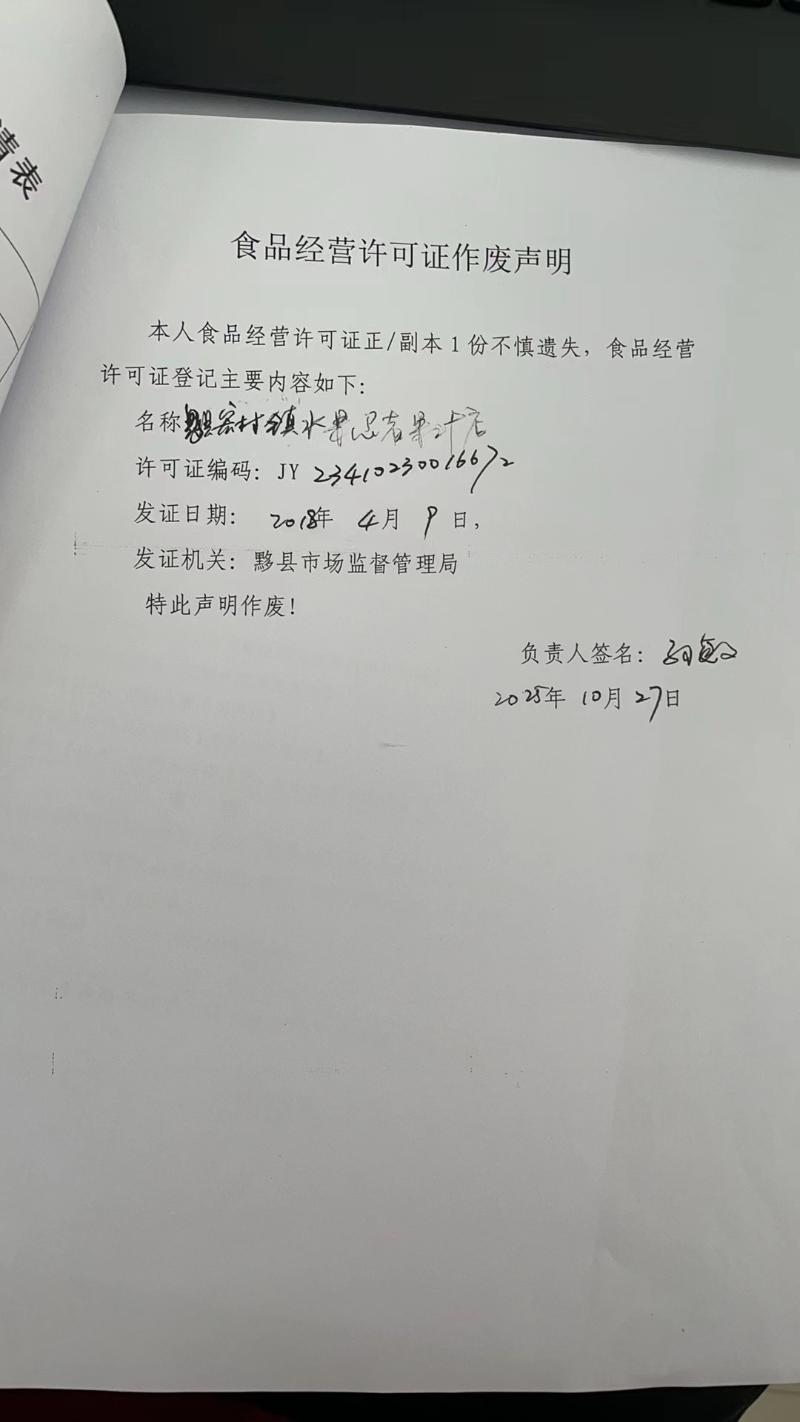 请表
食品经营许可证作废声明
本人食品经营许可证正/副本1份不慎遗失，食品经营
许可证登记主要内容如下：
名称 村镇水果思者果汁店
许可证编码：JY 23410230016672
发证日期： 2018年 4月 9日，
发证机关：黟县市场监督管理局
特此声明作废！
负责人签名：
2025年 10月 27日